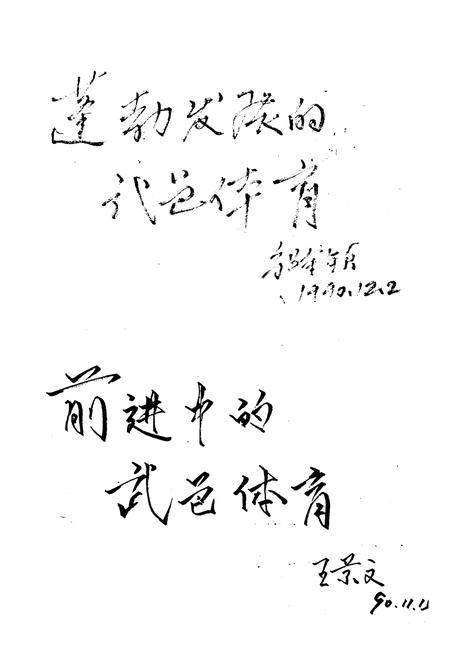 蓬勃发展的
武邑体育
1990.12.2
前进中的
武邑体育
王景文
90.11.11